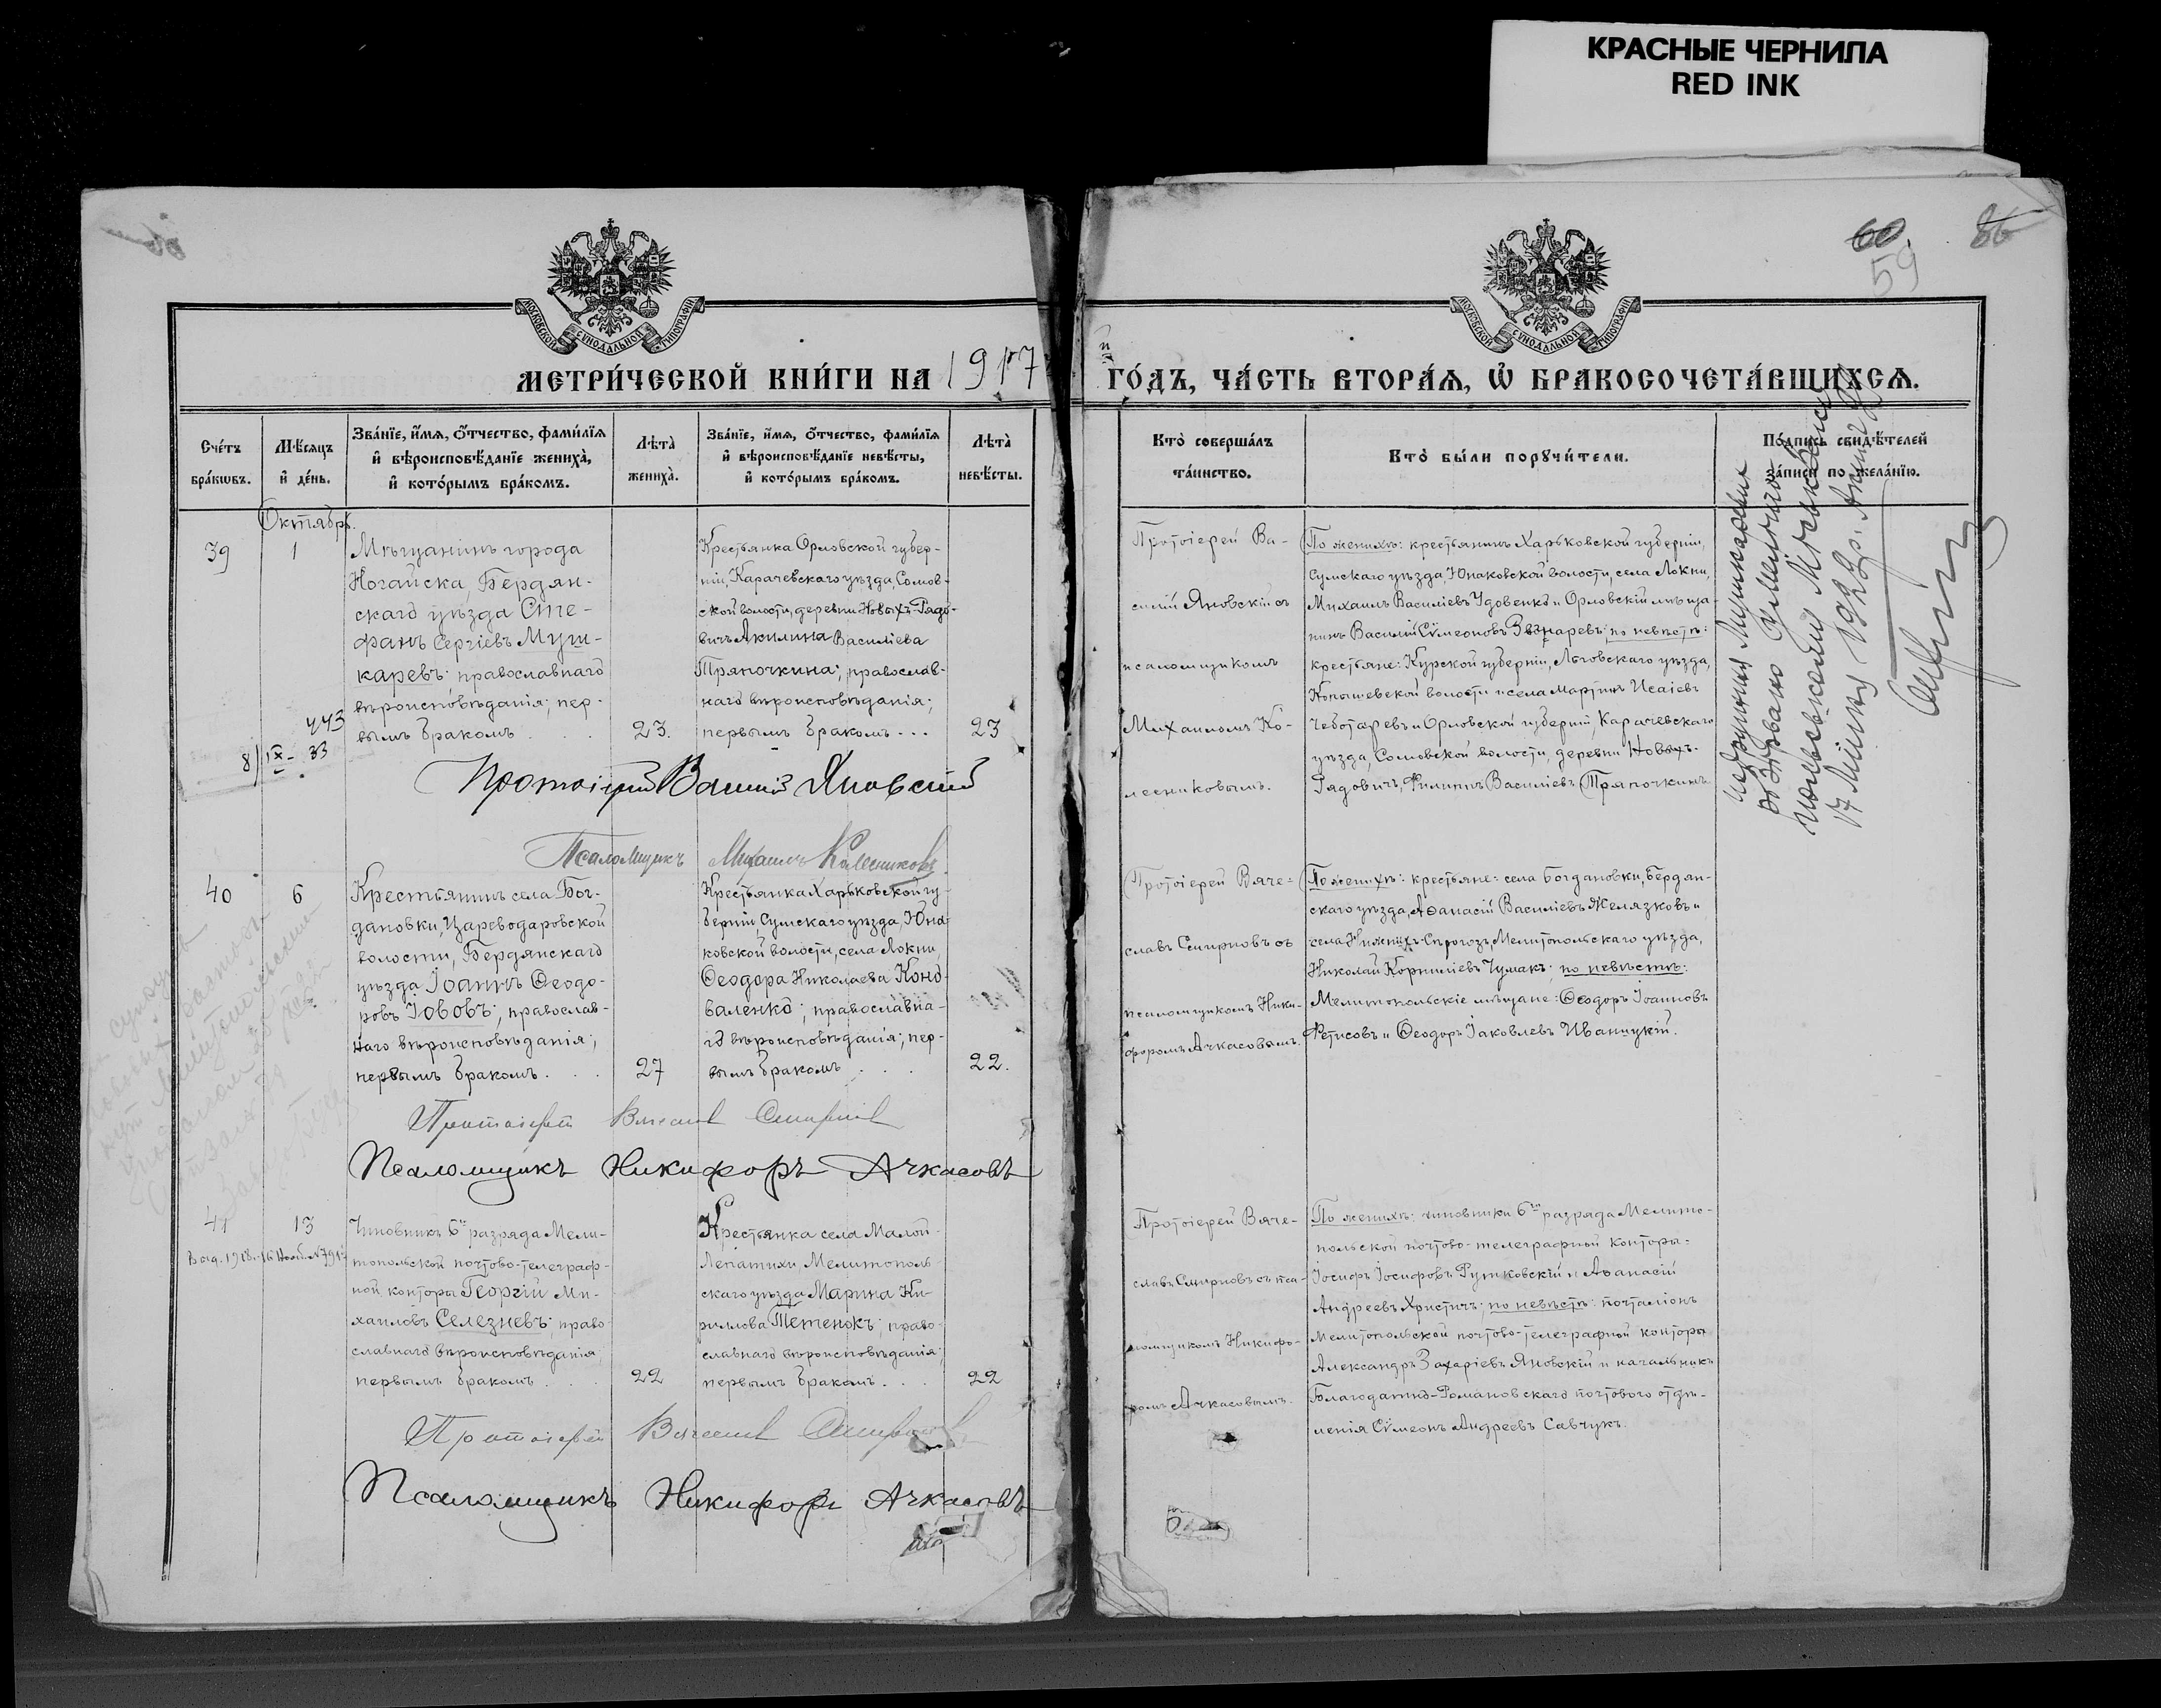 КРАСНЫЕ ЧЕРНИЛА
RED INK
60. 86
59
МОСКОВСКОЙ СѴНОДАЛЬНОЙ ТИПОГРАФІИ
МОСКОВСКОЙ СѴНОДАЛЬНОЙ ТИПОГРАФІИ
МЕТРИ́ЧЕСКОЙ КНИ́ГИ НА 1917
й ГО́ДЪ, ЧА́СТЬ ВТОРА́Ѧ, Ѡ҆ БРАКОСОЧЕТА́ВШИХСѦ.
Сче́тъ бра́кѡвъ.
Мѣ́сѧцъ и҆ де́нь.
Зва́нїе, и҆́мѧ, ѻ҆́тчество, фамѝлїѧ
и҆ вѣроисповѣ́данїе жениха̀,
и҆ кото́рымъ бра́комъ.
Лѣта̀ жениха̀.
Зва́нїе, и҆́мѧ, ѻ҆́тчество, фамѝлїѧ
и҆ вѣроисповѣ́данїе невѣ́сты,
и҆ кото́рымъ бра́комъ.
Лѣта̀ невѣ́сты.
Кто̀ соверша́лъ та́инство.
Кто̀ бы́ли порꙋчи́тели.
По́дпись свидѣ́телей за́писи по жела́нїю.
Октябрь.
39
1
Мѣщанинъ города
Ногайска, Бердян-
скаго уѣзда Сте-
фанъ Сергіевъ Муш-
каревъ; православнаго
вѣроисповѣданія; пер-
вымъ бракомъ . . .
23.
443
8/IX - 33
Крестьянка Орловской губер-
ніи, Карачевскаго уѣзда, Сомов-
ской волости, деревни Новыхъ-Рядо-
вичъ Акилина Василіева
Тряпочкина; православ-
наго вѣроисповѣданія;
первымъ бракомъ...
23
Протоіерей Ва-
силій Яновскій съ
псаломщикомъ
Михаиломъ Ко-
лесниковымъ.
По женихѣ: крестьянинъ Харьковской губерніи,
Сумскаго уѣзда, Юнаковской волости, села Локни,
Михаилъ Василіевъ Удовенко и Орловскій мѣща-
нинъ Василій Сѵмеоновъ Звонаревъ; по невѣстѣ:
крестьяне: Курской губерніи, Льговскаго уѣзда,
Копышевской волости и села Мартинъ Исаіевъ
Чеботаревъ и Орловской губерніи, Карачевскаго
уѣзда, Сомовской волости, деревни Новыхъ-
Рядовичъ, Филиппъ Василіевъ Тряпочкинъ
Протоіерей Василій Яновскій
Псаломщикъ Михаилъ Колесниковъ
40
6
Крестьянинъ села Бог-
дановки, Цареводаровской
волости, Бердянскаго
уѣзда Іоаннъ Ѳеодо-
ровъ Іововъ; православ-
наго вѣроисповѣданія;
первымъ бракомъ . . .
27
Крестьянка Харьковской гу-
берніи, Сумскаго уѣзда, Юна-
ковской волости, села Локни,
Ѳеодора Николаева Коно-
валенко; православна-
го вѣроисповѣданія; пер-
вымъ бракомъ . . .
22.
Протоіерей Вяче-
славъ Смирновъ съ
псаломщикомъ Ники-
форомъ Ачкасовымъ.
По женихѣ: крестьяне: села Богдановки, Бердян-
скаго уѣзда, Аѳанасій Василіевъ Желязковъ и
села Нижнихъ-Сѣрогозъ, Мелитопольскаго уѣзда,
Николай Корниліевъ Чумакъ; по невѣстѣ:
Мелитопольскіе мѣщане: Ѳеодоръ Іоанновъ
Фетисовъ и Ѳеодоръ Іаковлевъ Иваницкій.
Протоіерей Вячеслав Смирнов
Псаломщикъ Никифоръ Ачкасовъ
41
13
Чиновникъ 6го разряда Мели-
топольской почтово-телеграф-
ной конторы Георгій Ми-
хаиловъ Селезневъ; право-
славнаго вѣроисповѣданія;
первымъ бракомъ . . .
22
Крестьянка села Малой-
Лепатихи, Мелитополь-
скаго уѣзда Марина Ки-
риллова Тетенокъ; право-
славнаго вѣроисповѣданія;
первымъ бракомъ. . .
22
Протоіерей Вяче-
славъ Смирновъ съ пса-
ломщикомъ Никифо-
ромъ Ачкасовымъ.
По женихѣ: чиновники 6го разряда Мелито-
польской почтово-телеграфной конторы-
Іосифъ Іосифовъ Рутковскій и Аѳанасій
Андреевъ Христичъ; по невѣстѣ: почталіонъ
Мелитопольской почтово-телеграфной конторы
Александръ Захаріевъ Яновскій и начальникъ
Благодатно-Романовскаго почтоваго отдѣ-
ленія Сѵмеонъ Андреевъ Савчукъ.
Протоіерей Вячеслав Смирнов
Псаломщикъ Никифоръ Ачкасовъ